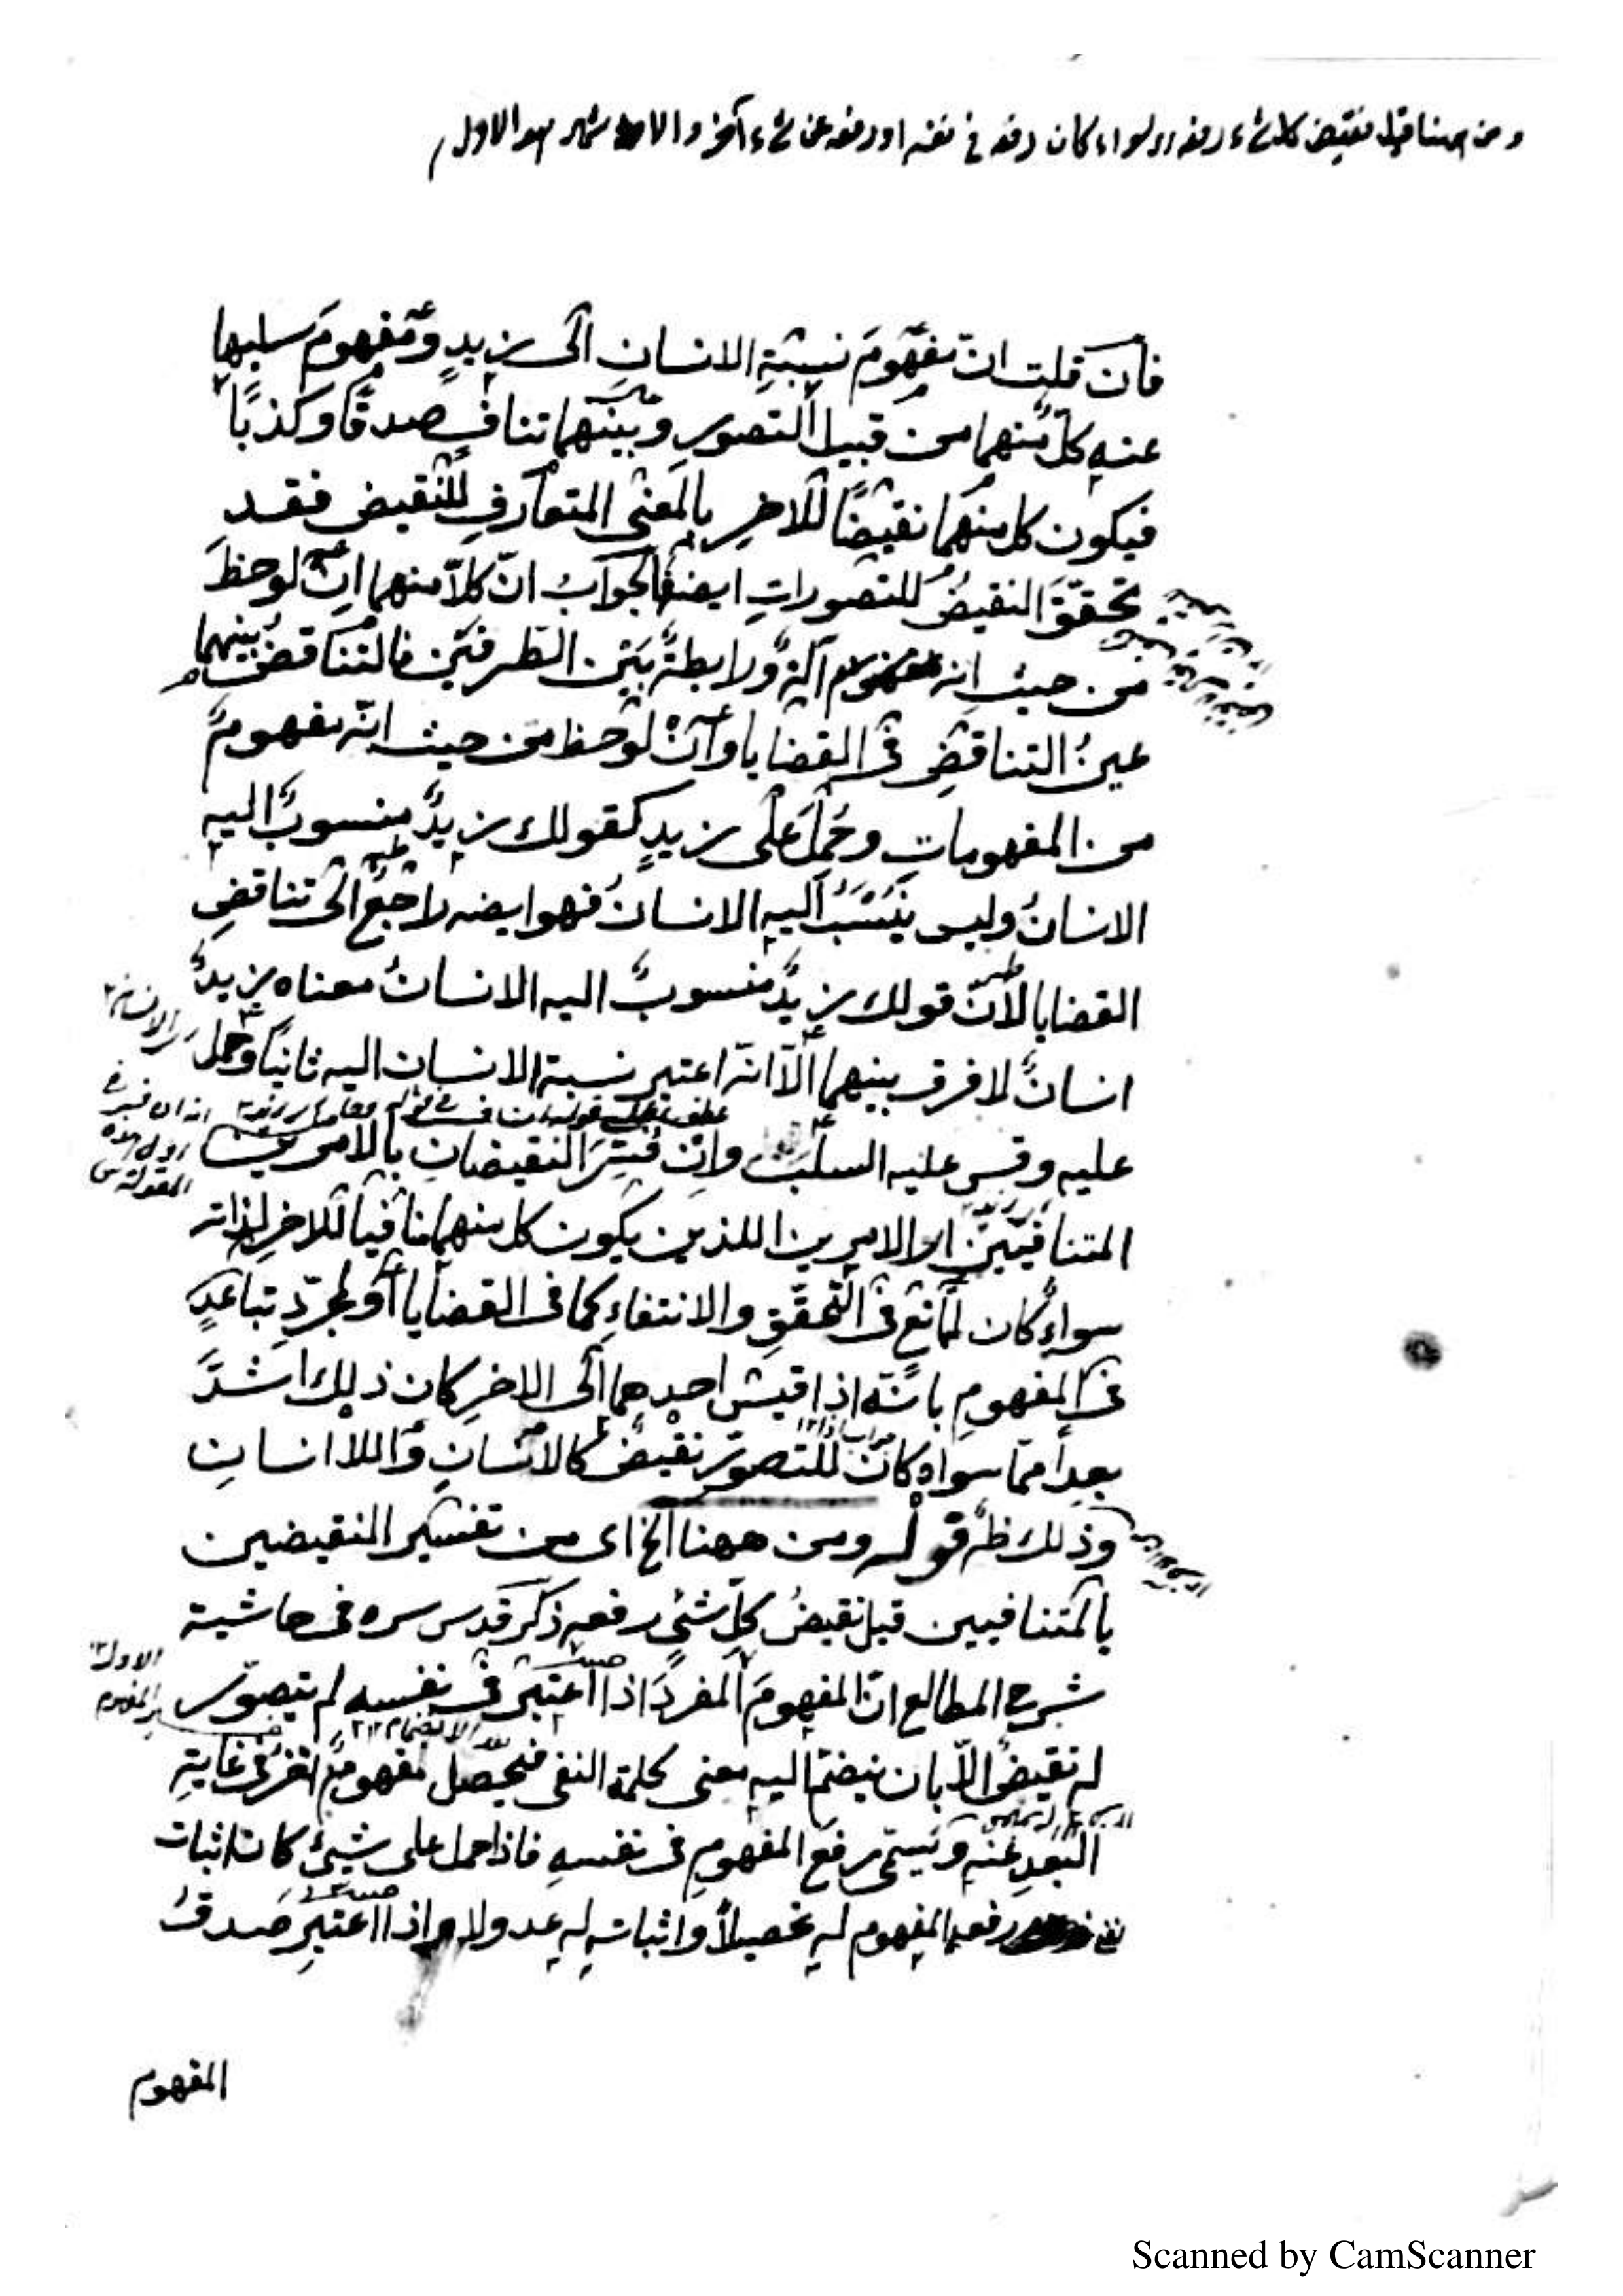 ومن ههنا قيل نقيض كل شيء رفعه سواء كان رفعه في نفسه او رفعه عن شيء آخر والاول
فان قلت انّ مفهومَ نسبةِ الانسانِ الى زيدٍ ومفهومَ سلبها
عنه كلٌّ منهما من قبيل التصور وبينهما تنافٍ صدقًا وكذبًا
فيكون كل منهما نقيضًا للاخرِ بالمعنى المتعارفِ للنقيض فقد
تحققَ النقيضُ للتصوراتِ ايضه فالجوابُ انّ كلاّ منهما ان لوحظَ
من حيث انه آلةٌ ورابطةٌ بَيْن الطرفَيْن فالتناقضُ بينهما
عينُ التناقضِ فى القضايا وان لوحظ من حيث انّه مفهومٌ
من المفهوماتِ وحُمِلَ على زيدٍ كقولك زيدٌ منسوبٌ اليه
الانسانُ وليس يُنْسَبُ اليه الانسانُ فهو ايضه راجعٌ الى تناقضِ
القضايا لانّ قولك زيدٌ منسوبٌ اليه الانسانُ معناه زيدٌ
انسانٌ لا فرق بينهما الّا انّه اعتبر نسبة الانسان اليه ثانيًا وحمل
عليه وقس عليه السلبَ وانْ فُسِّرَ النقيضانِ بالامرين
المتنافيَيْن او الامرين اللذين يكون كل منهما منافياً للاخرِ لذاته
سواءٌ كان لتمانعٍ فى التحقّقِ والانتفاءِ كما فى القضايا او لمجرّدِ تباعدٍ
فى المفهومِ بانّه اذا قيسَ احدهما الى الاخرِ كان ذلك اشدَّ
بعداً ممّا سواه كان للتصوّرِ نقيضٌ كالانسانِ واللاانسانِ
وذلك ظه قوله ومن ههنا الخ اى من تفسير النقيضين
بالمتنافيين قيل نقيضُ كلِّ شئٍ رفعه ذكر قدس سره فى حاشية
شرح المطالع انّ المفهومَ المفردَ اذا اعتبرَ فى نفسه لم يتصوّر
له نقيضٌ الّا بان ينضمّ اليه معنى كلمة النفى فيحصّل مفهومٌ اخرُ فى غايةِ
البُعدِ عنه ويسمّى رفعَ المفهومِ فى نفسهِ فاذا حمل على شيئٍ كان اثبات
رفع المفهوم له تحصيلاً واثباته له عدولا واذا اعتبرَ صدقُ
المفهوم
Scanned by CamScanner